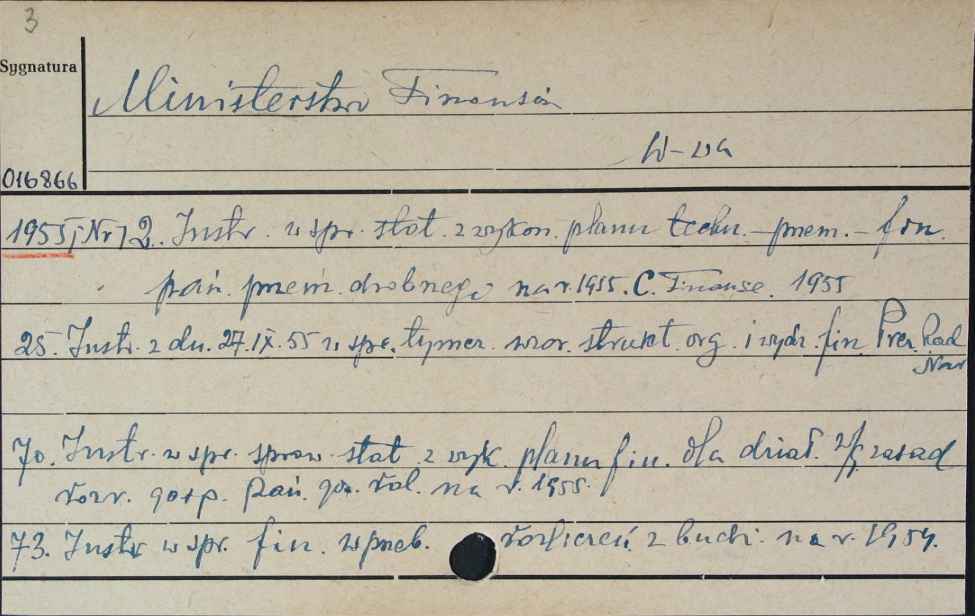 3
Sygnatura
Ministerstwo Finansów
W-wa
016866
1955, Nr 12. Instr. w spr. stat. z wykon. planu techn. - przem. - fin.
pań. przem. drobnego na r. 1955. C. Finanse. 1955
25. Instr. z dn. 27.IX.55 w spr. tymcz. wzor. strukt. org. i wydz. fin. Prez. Rad
Nar
70. Instr. w spr. spraw. stat. z wyk. planu fin. dla dział. w/g zasad
rozr. gosp. Pań. gos. rol. na r. 1955.
73. Instr w spr. fin. rozliczeń z budż. na r. 1954.